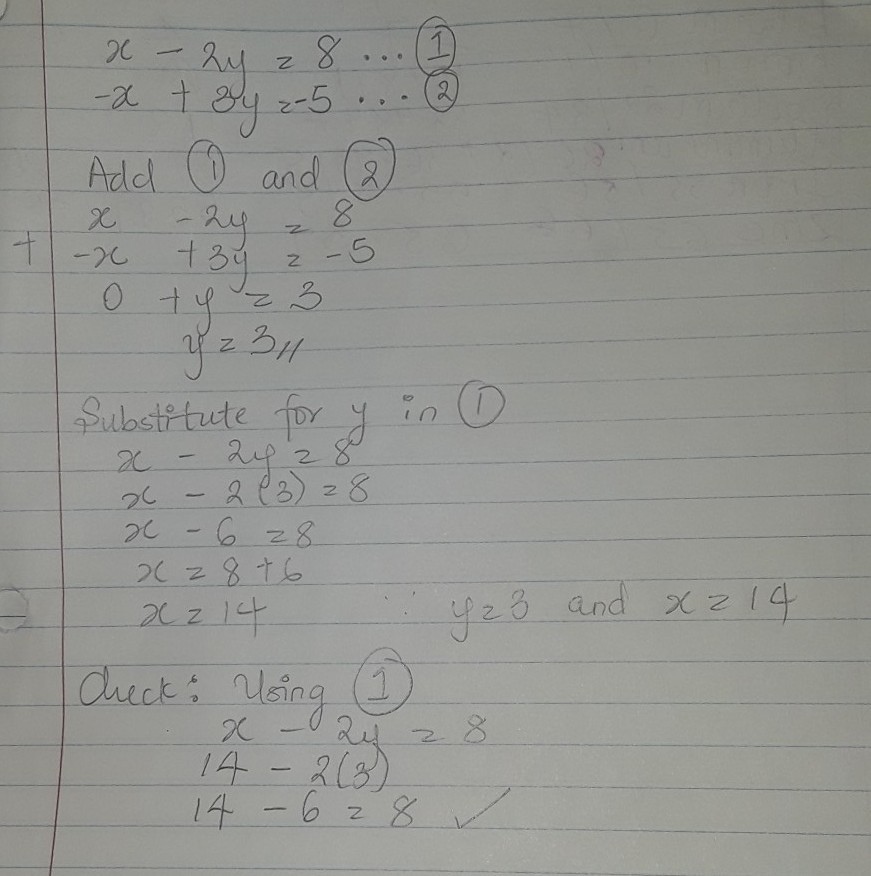 x - 2y = 8 ... ①
-x + 3y = -5 ... ②
Add ① and ②
x - 2y = 8
+ -x + 3y = -5
0 + y = 3
y = 3 //
Substitute for y in ①
x - 2y = 8
x - 2(3) = 8
x - 6 = 8
x = 8 + 6
x = 14 ∵ y = 3 and x = 14
Check: Using ①
x - 2y = 8
14 - 2(3)
14 - 6 = 8 ✓